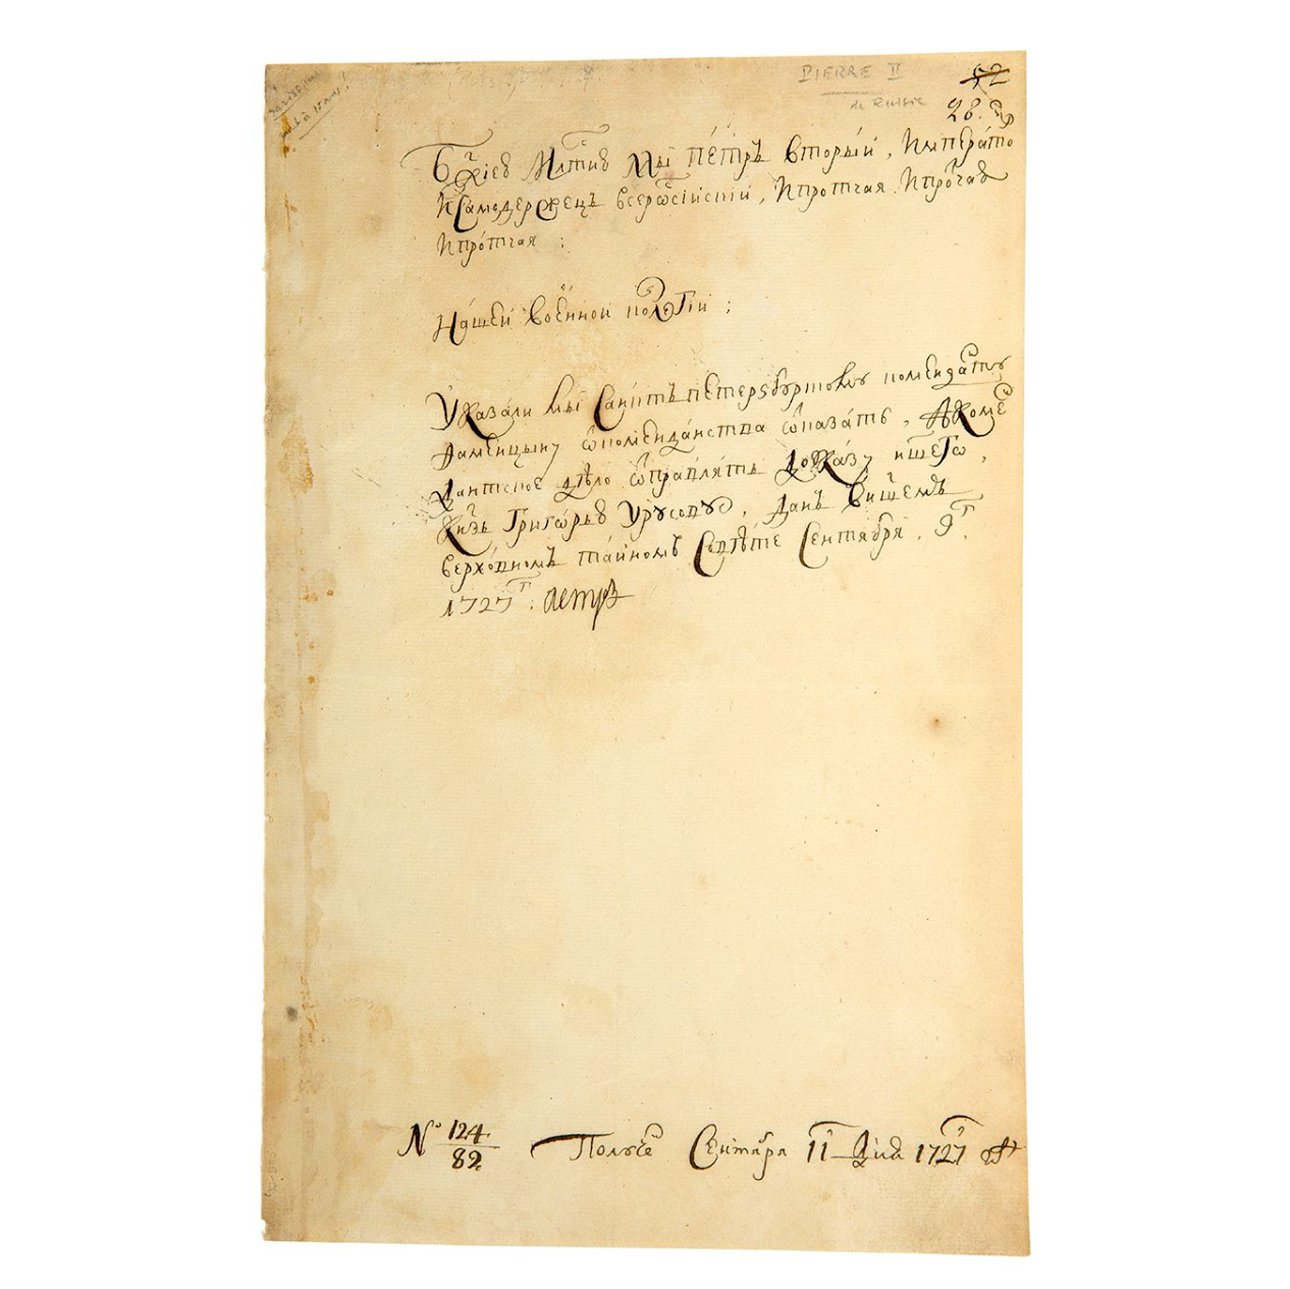 PIERRE II
de Russie
52
28.
Бжіею Млтию Мы Пéтръ Вторыи, Императо
И Самодержецъ Всеросiискiи, И протчая И прочая
И прóтчая :
Нáшей Воéнной колегiи ;
Указáли мы Санктъ петерзбургскому коменданту
Фаминцыну ѿ комендáнства ѿказáть, А коме
дантское дѣло ѿправлять до Указу ншего,
Кнзь Григóрью Урусову, данъ внашемъ
верхóвномъ тáйномъ Совѣте Сентября. 9г.
1727г: Петръ
№ 124
82
Получе Сентября 11 дня 1727